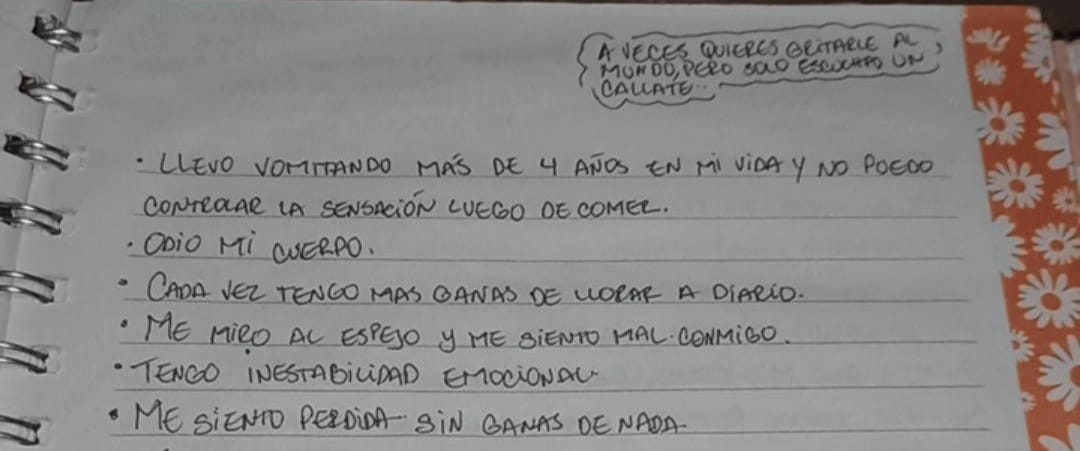 A VECES QUIERES GRITARLE AL
MUNDO, PERO SOLO ESCUCHAS UN
CALLATE..
· LLEVO VOMITANDO MÁS DE 4 AÑOS EN MI VIDA Y NO PUEDO
CONTROLAR LA SENSACIÓN LUEGO DE COMER.
· ODIO MI CUERPO.
· CADA VEZ TENGO MAS GANAS DE LLORAR A DIARIO.
· ME MIRO AL ESPEJO Y ME SIENTO MAL CONMIGO.
· TENGO INESTABILIDAD EMOCIONAL
· ME SIENTO PERDIDA SIN GANAS DE NADA.